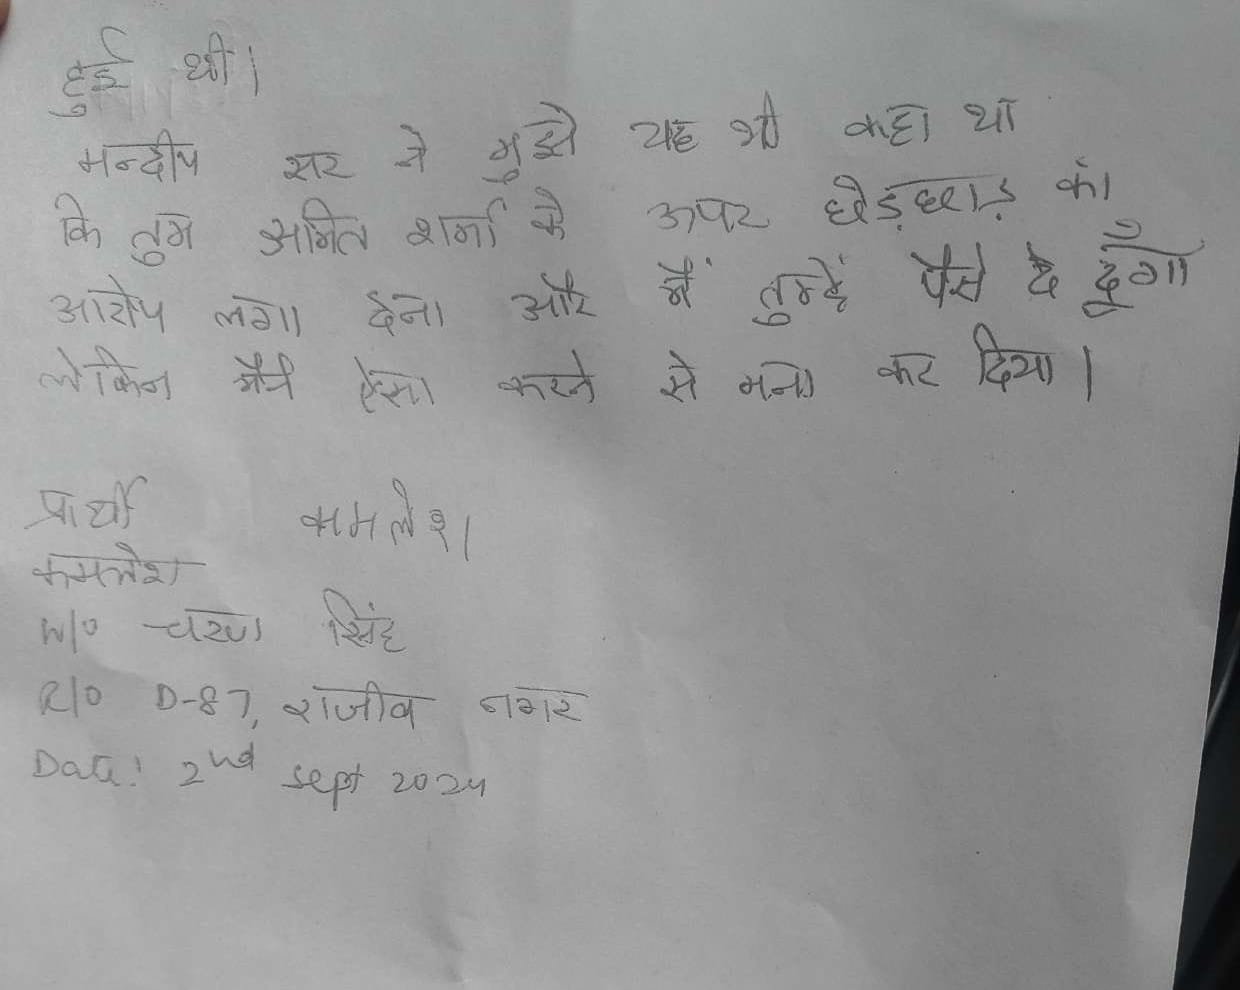 हुई थी।
मन्दीप सर ने मुझे यह भी कहा था
कि तुम अमित शर्मा के ऊपर छेड़छाड़ का
आरोप लगा देना और मैं तुम्हें पैसे दे दूँगा
लेकिन मैंने ऐसा करने से मना कर दिया।
प्रार्थी कमलेश
कमलेश
W/O चरण सिंह
R/O D-87, राजीव नगर
Date: 2nd Sept 2024